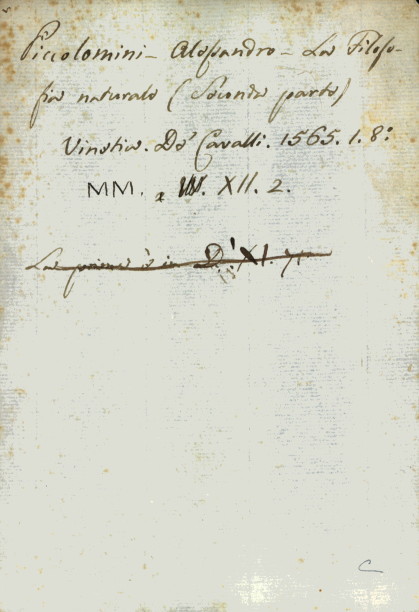 Piccolomini - Alessandro - La Filoso-
fia naturale (Seconda parte)
Vinetia. De' Cavalli. 1565. 1. 8º
MM. XII. 2.
La prima è in D.' XI. 71
C